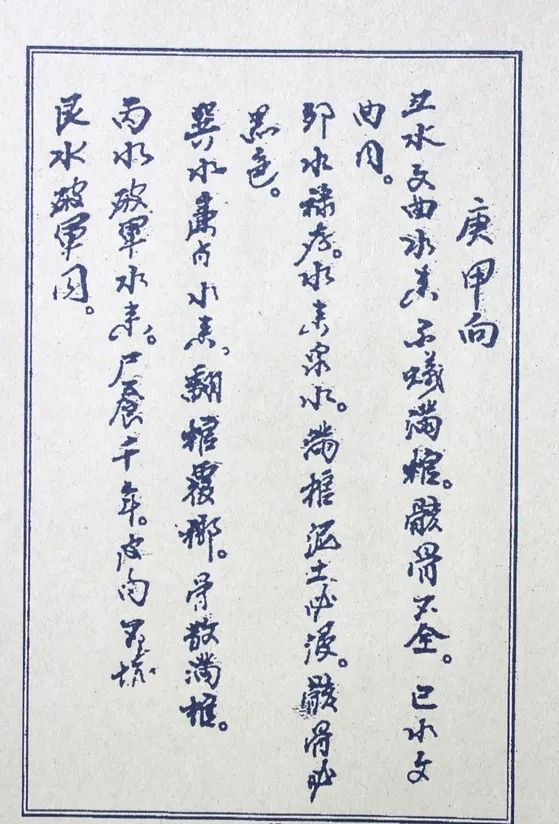 庚甲向
丑水文曲水来 子蟻满棺。骸骨不全。巳水文
曲同。
卯水禄存。水来泉水。满棺泥土必浸。骸骨必
黑色。
巽水廉贞水来。翻棺覆槨。骨散满棺。
丙水破軍水来。尸養千年。皮肉
艮水破軍同。